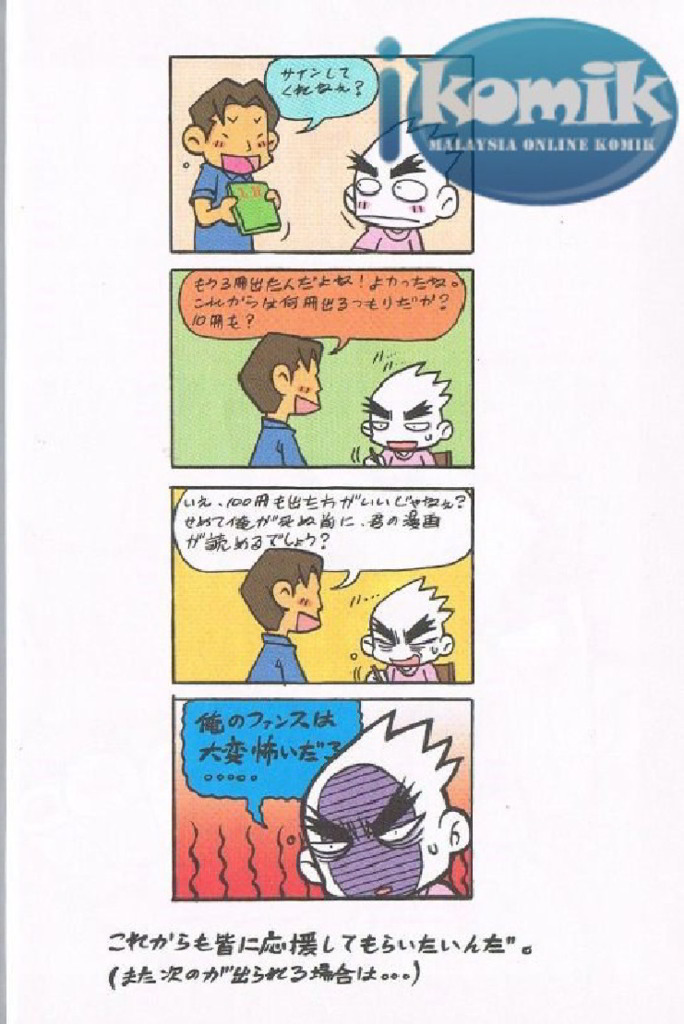 サインして
くれねぇ?
ikomik
MALAYSIA ONLINE KOMIK
もう3冊出たんだよね!よかったね。
これからは何冊出るつもりだが?
10冊も?
いえ、100冊も出た方がいいじゃねぇ?
せめて俺が死ぬ前に、君の漫画
が読めるでしょう?
俺のファンスは
大変怖いだろ
.....
これからも皆に応援してもらいたいんだ"。
(また次のが出られる場合は...)